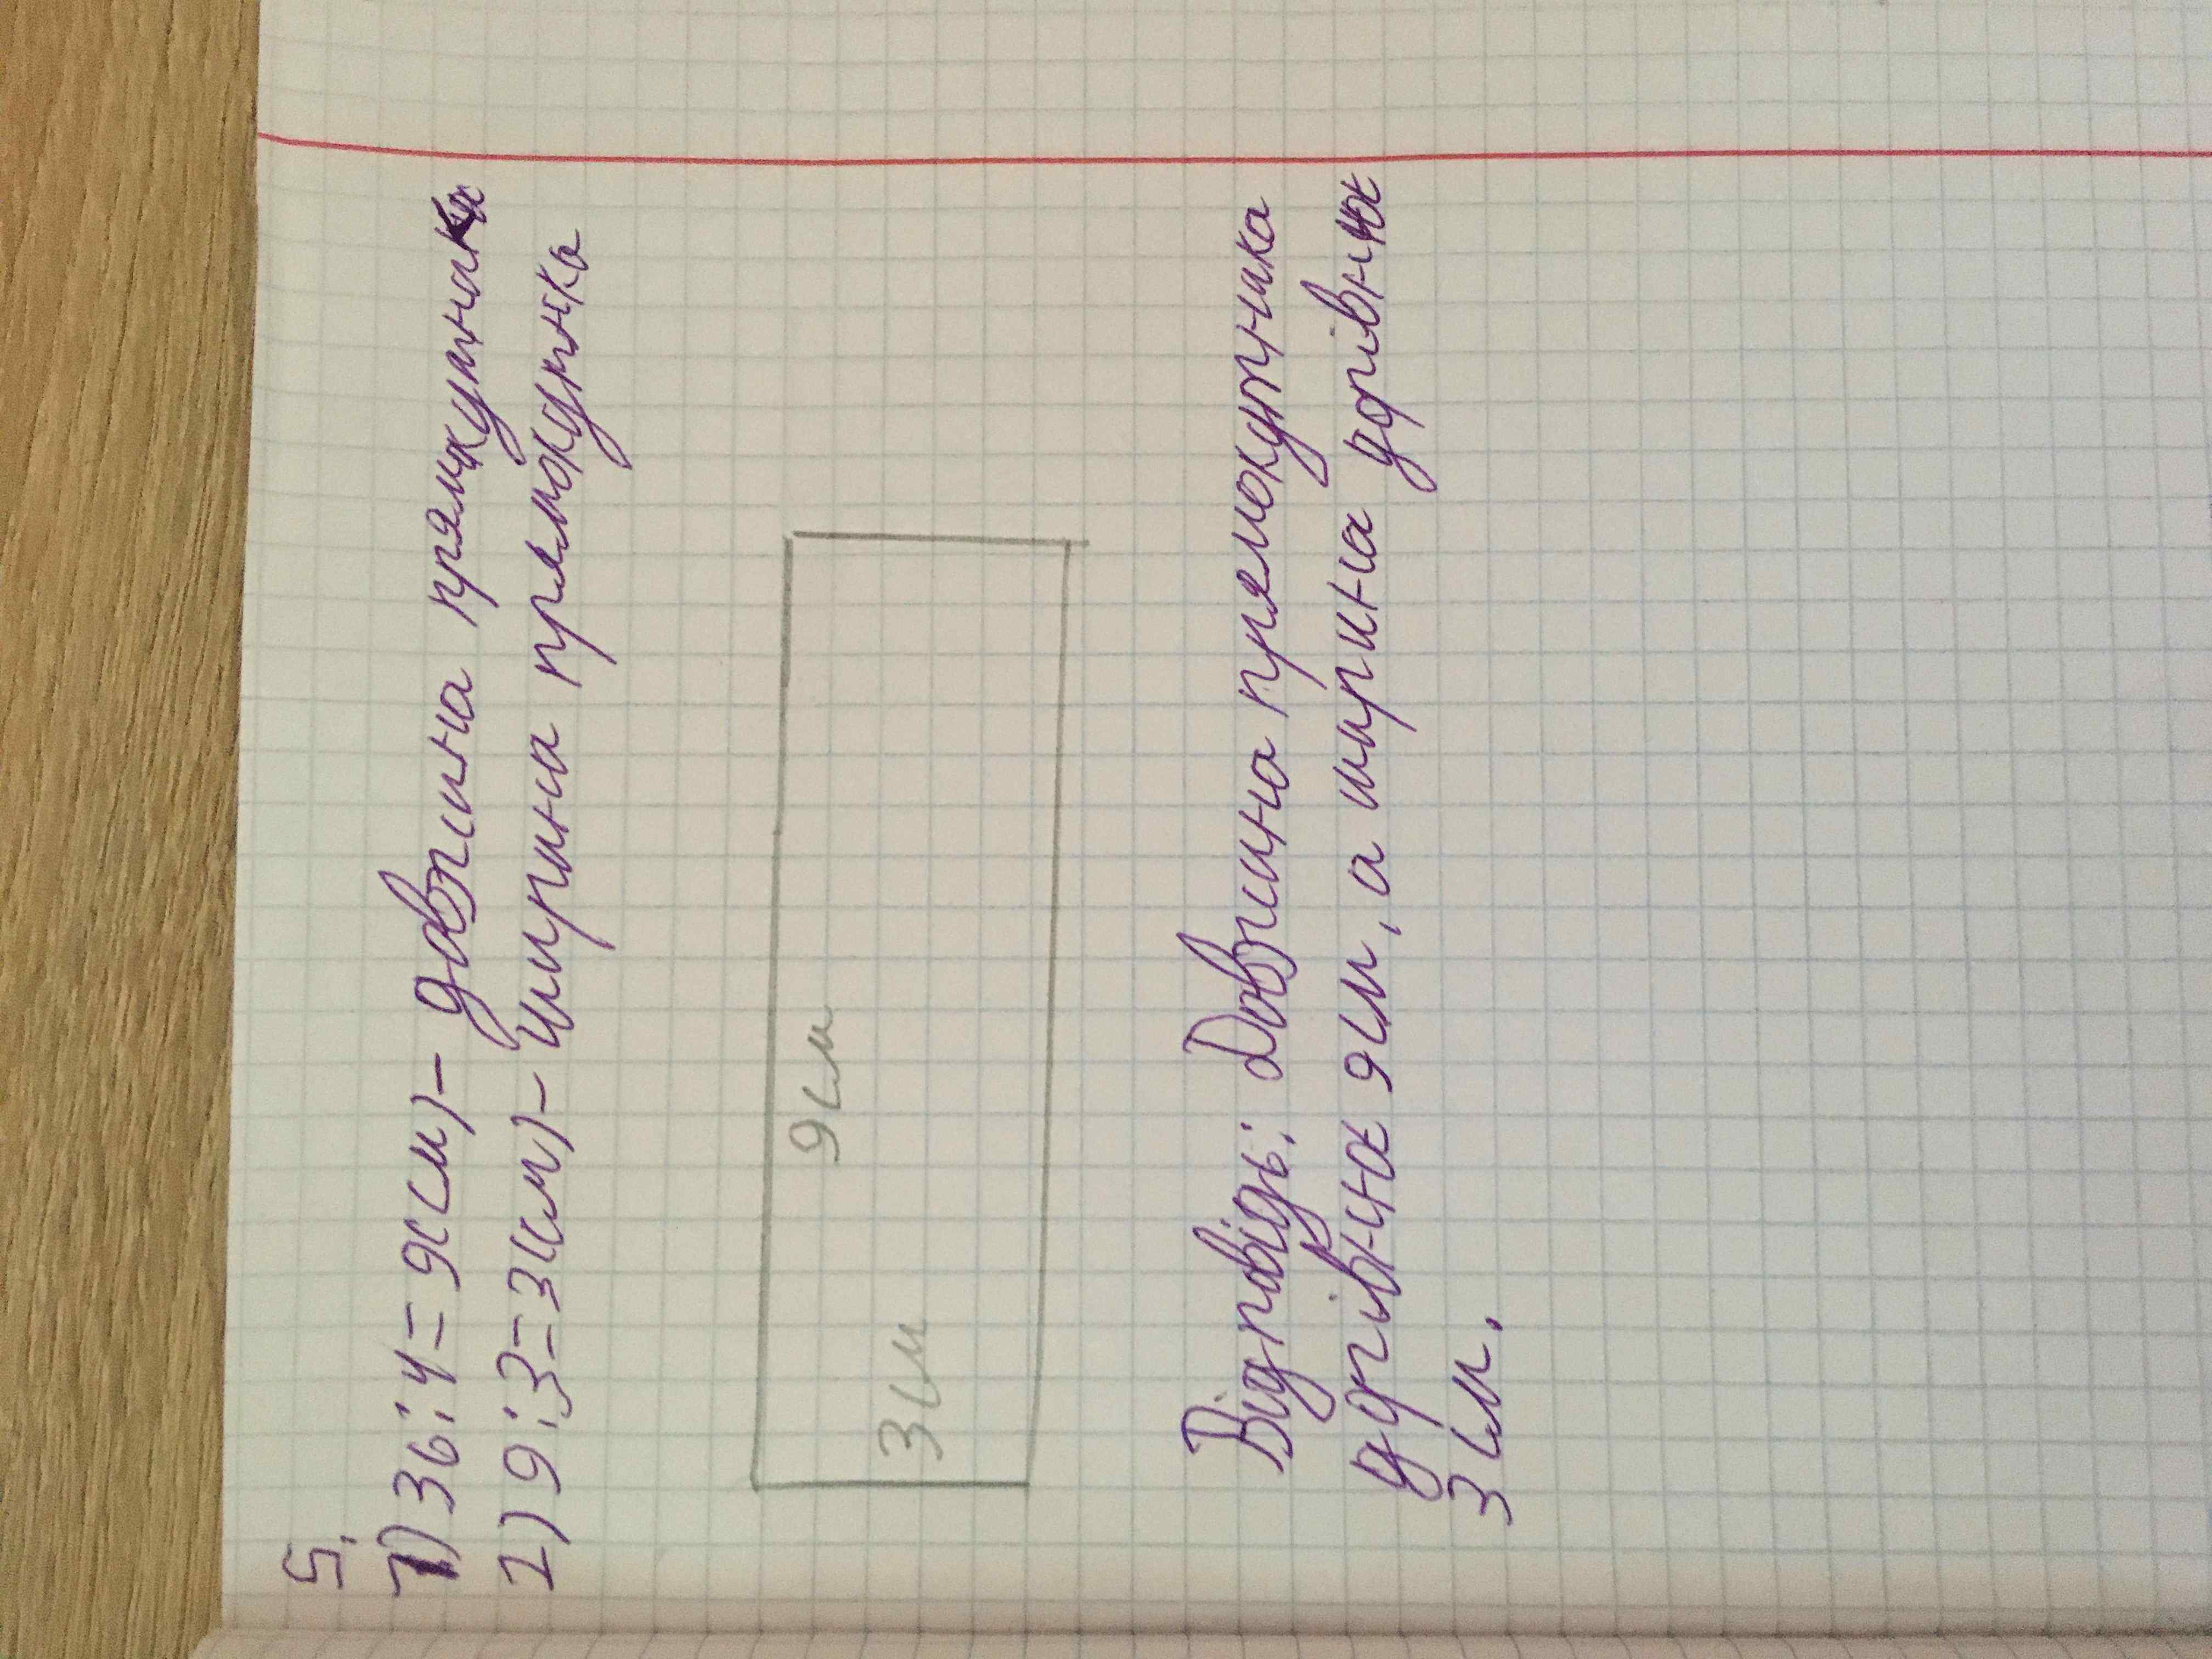 5.
1) 36:4=9(см)- довжина прямкутника
2) 9:3=3(см)- ширина прямокутнка
9см
3см
Відповідь: Довжина прямокутника
дурівнює 9см, а ширина дорівнює
3 см.